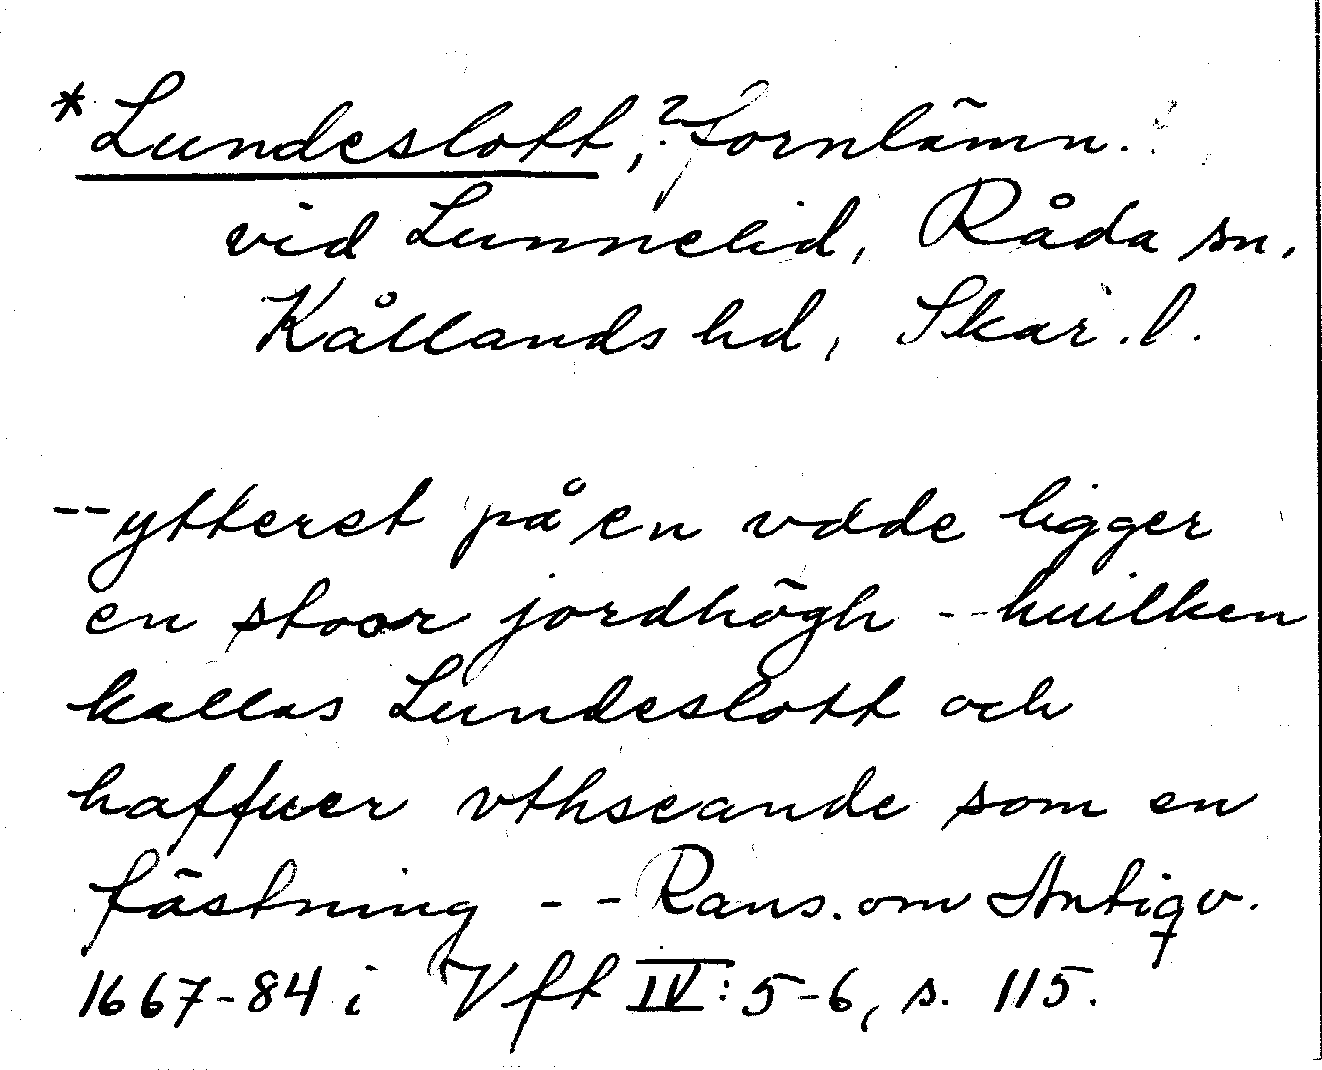 *Lundeslott, ? fornlämn.
vid Lunnelid, Råda sn.
Kållands hd, Skar. l.
--ytterst på en vdde ligger
en stoor jordhögh -- huilken
kallas Lundeslott och
haffuer vthseande som en
fästning -- Rans. om Antiqv.
1667-84 i Vft IV: 5-6, s. 115.